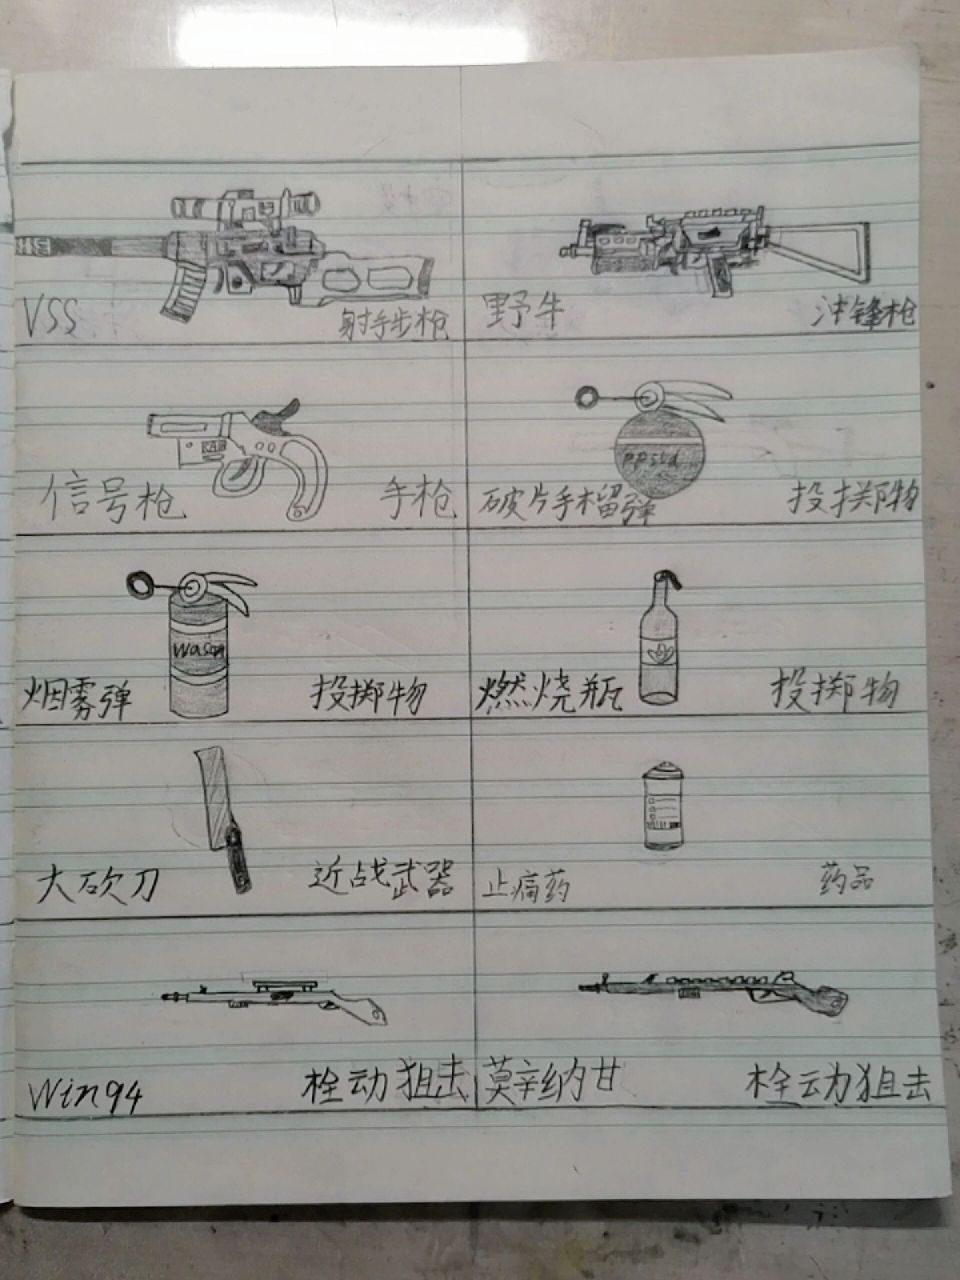 VSS 射手步枪
野牛 冲锋枪
信号枪 手枪
破片手榴弹 投掷物
烟雾弹 投掷物
燃烧瓶 投掷物
大砍刀 近战武器
止痛药 药品
Win94 栓动狙击
莫辛纳甘 栓动狙击